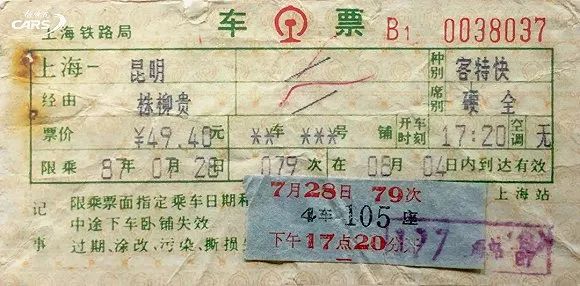 CARS
上海铁路局 车 票 B1 0038037
上海— 昆明 种别 客特快
经由 株柳贵 席别 硬 全
票价 ¥49.40元 **车 ***号 铺 开车时刻 17:20 空调 无
限乘 87年07月28日 079次 在 08月 04日内到达有效
7月28日 79次
上海站
4车 105座
下午17点20分开
记 限乘票面指定乘车日期和
中途下车卧铺失效
事 过期、涂改、污染、撕损